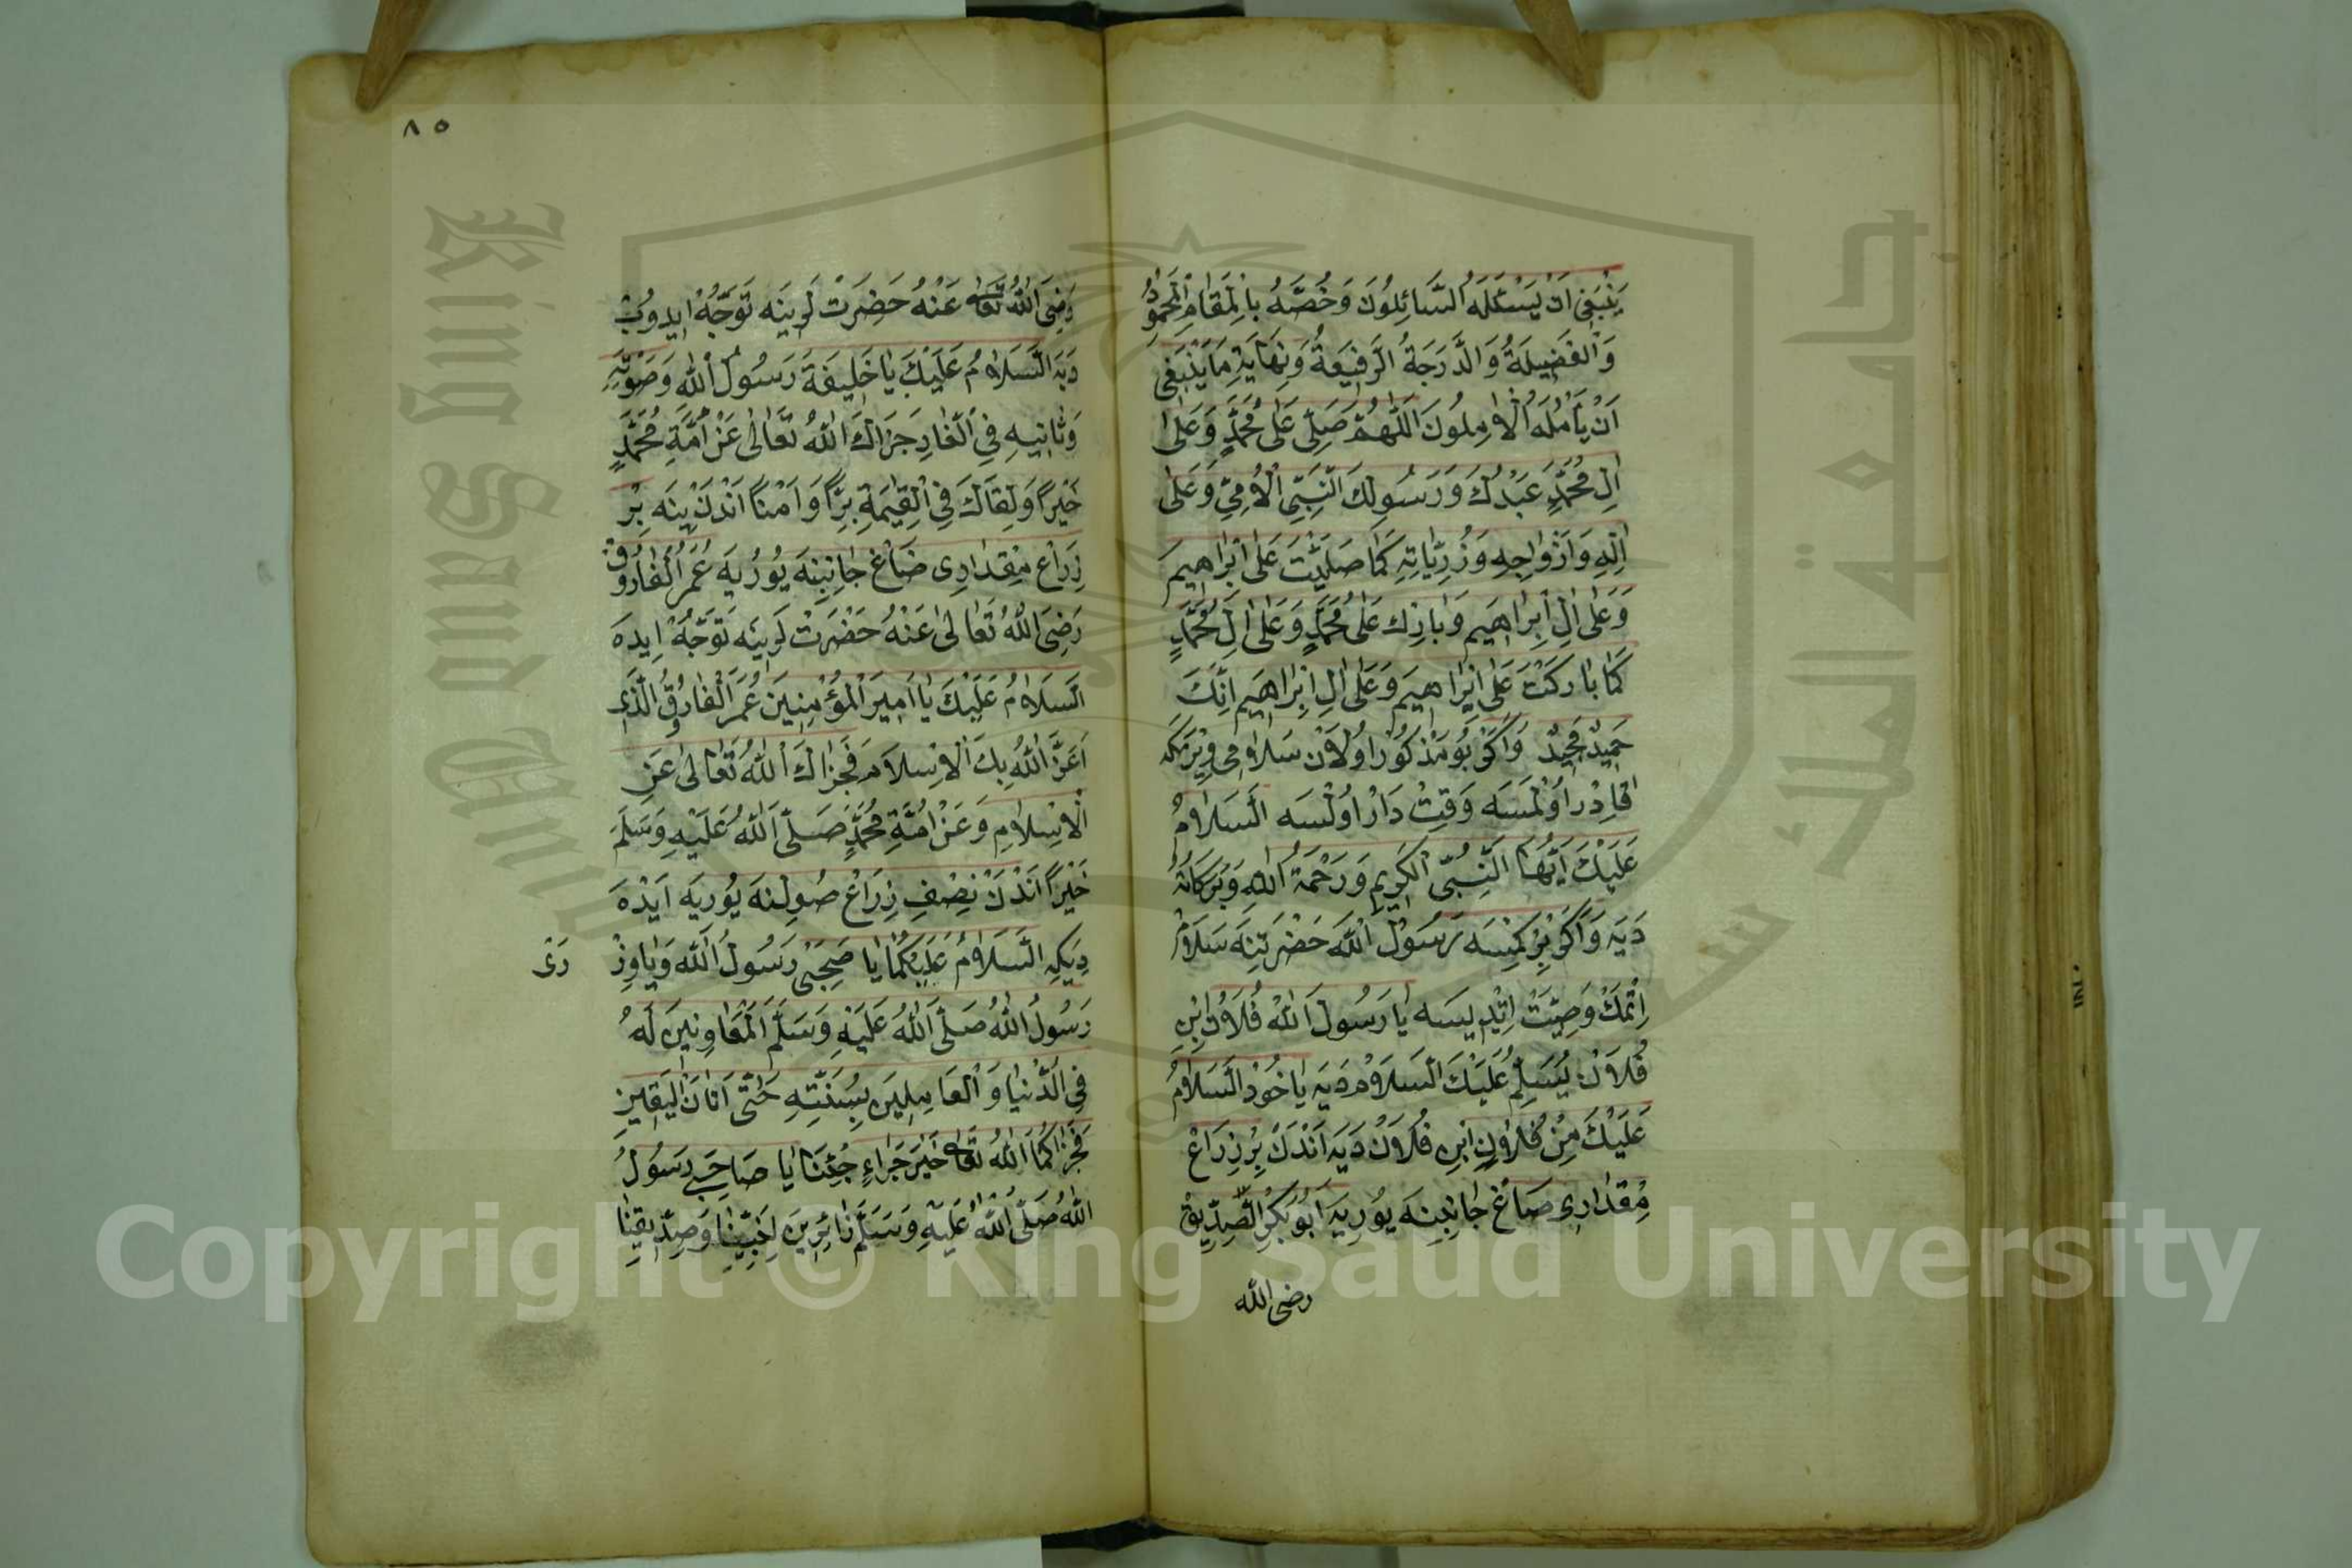 يَنْبَغِى اَنْ يَسْئَلَهُ السَّائِلُونَ وَخُصَّهُ بِالْمَقَامِ الْمَحْمُودِ
وَالْفَضِيلَةُ وَالدَّرَجَةُ الرَّفِيعَةُ وَنِهَايَةِ مَا يَنْبَغِى
اَنْ يَأْمُلَهُ الْاٰمِلُونَ اَللّٰهُمَّ صَلِّى عَلٰى مُحَمَّدٍ وَعَلٰى
اٰلِ مُحَمَّدٍ عَبْدُكَ وَرَسُولِكَ النَّبِىِّ الْاُمِّىِّ وَعَلٰى
اٰلِهِ وَاَزْوَاجِهِ وَذُرِّيَّاتِهِ كَمَا صَلَّيْتَ عَلٰى اِبْرَاهِيمَ
وَعَلٰى اٰلِ اِبْرَاهِيمَ وَبَارِكْ عَلٰى مُحَمَّدٍ وَعَلٰى اٰلِ مُحَمَّدٍ
كَمَا بَارَكْتَ عَلٰى اِبْرَاهِيمَ وَعَلٰى اٰلِ اِبْرَاهِيمَ اِنَّكَ
حَمِيدٌ مَجِيدٌ وَاَكَرْ بُو مَذْكُورْ اُولَانْ سَلَامِى وِيْرْمَكَه
قَادِرْ اُولْمَسَه وَقِتْ دَارْ اُولْسَه اَلسَّلَامُ
عَلَيْكَ اَيُّهَا النَّبِىُّ الْكَرِيمِ وَرَحْمَةُ اللهِ وَبَرَكَاتُهُ
دَيَه وَاَكَرْ بِرْ كِمْسَه رَسُولُ اللّٰه حَضْرَتِنَه سَلَامْ
اِتْمَكْ وَصِيَّتْ اِتْدِيسَه يَا رَسُولَ اللّٰهْ فُلَانْ اِبْنِ
فُلَانْ يُسَلِّمُ عَلَيْكَ السَّلَامْ دَيَه يَا خُودْ اَلسَّلَامُ
عَلَيْكَ مِنْ فُلَانِ اِبْنِ فُلَانْ دَيَه اَنْدَنْ بِرْ ذِرَاعْ
مِقْدَارِى صَاغْ جَانِبِنَه يُورِيَه اَبُو بَكْرِ الصِّدِّيقْ
رضى الله
٨٥
رَضِىَ اللّٰهُ تَعَالٰى عَنْهُ حَضِرَتْ لَرِينَه تَوَجُّهْ اِيدُوبْ
دَيَه اَلسَّلَامُ عَلَيْكَ يَا خَلِيفَةَ رَسُولُ اللّٰهِ وَصَفِيِّهِ
وَثَانِيهِ فِى الْغَارِ جَزَاكَ اللّٰهُ تَعَالٰى عَنْ اُمَّةِ مُحَمَّدٍ
خَيْرًا وَلِقَاكَ فِى الْقِيٰمَةِ بِرًّا وَاَمْنًا اَنْدَنْ يِنَه بِرْ
ذِرَاعْ مِقْدَارِى صَاغْ جَانِبِنَه يُورُيَه عُمَرُ الْفَارُوقْ
رَضِىَ اللّٰهُ تَعَالٰى عَنْهُ حَضْرَتْ لَرِينَه تَوَجُّهْ اِيدَه
اَلسَّلَامُ عَلَيْكَ يَا اَمِيرَ الْمُؤْمِنِينَ عُمَرَ الْفَارُوقُ الَّذِى
اَعَزَّ اللّٰهُ بِكَ الْاِسْلَامَ فَجَزَاكَ اللّٰهُ تَعَالٰى عَنِ
الْاِسْلَامِ وَعَنْ اُمَّةِ مُحَمَّدٍ صَلَّى اللّٰهُ عَلَيْهِ وَسَلَّمَ
خَيْرًا اَنْدَنْ نِصْفِ ذِرَاعْ صُولِنَه يُورِيَه اَيْدَه
دِيَكِه اَلسَّلَامُ عَلَيْكُمَا يَا صَحِبَىْ رَسُولُ اللّٰه وَيَا وَزِ
رَىْ
رَسُولُ اللّٰهُ صَلَّى اللّٰهُ عَلَيْهِ وَسَلَّمَ الْمُعَاوِنِينَ لَهُ
فِى الدُّنْيَا وَالْعَامِلِينَ بِسُنَّتِهِ حَتَّى اَتَانَ الْيَقِينِ
فَجَزَاكُمَا اللّٰهُ تَعَالٰى خَيْرَ جَزَاءٍ جُئْنَا يَا صَاحِبَىْ رَسُولُ
اللّٰهُ صَلَّى اللّٰهُ عَلَيْهِ وَسَلَّمَ زَائِرِينَ لِنَبِيِّنَا وَصِدِّيقِنَا
King Saud Univ
جامعة الملك س
Copyright © King Saud University